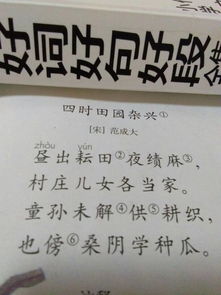 好词好句好段
四时田园杂兴①
[宋]范成大
zhòu yún
昼出耘田②夜绩麻③,
村庄儿女各当家。
童孙未解④供⑤耕织,
也傍⑥桑阴学种瓜。